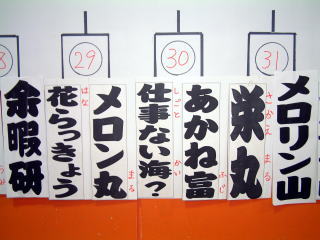 8
29
30
31
メロリン山
栄丸
さかえ まる
あかね富
ふじ
仕事ない海?
しごと かい
メロン丸
まる
花らっきょう
はな
余暇研